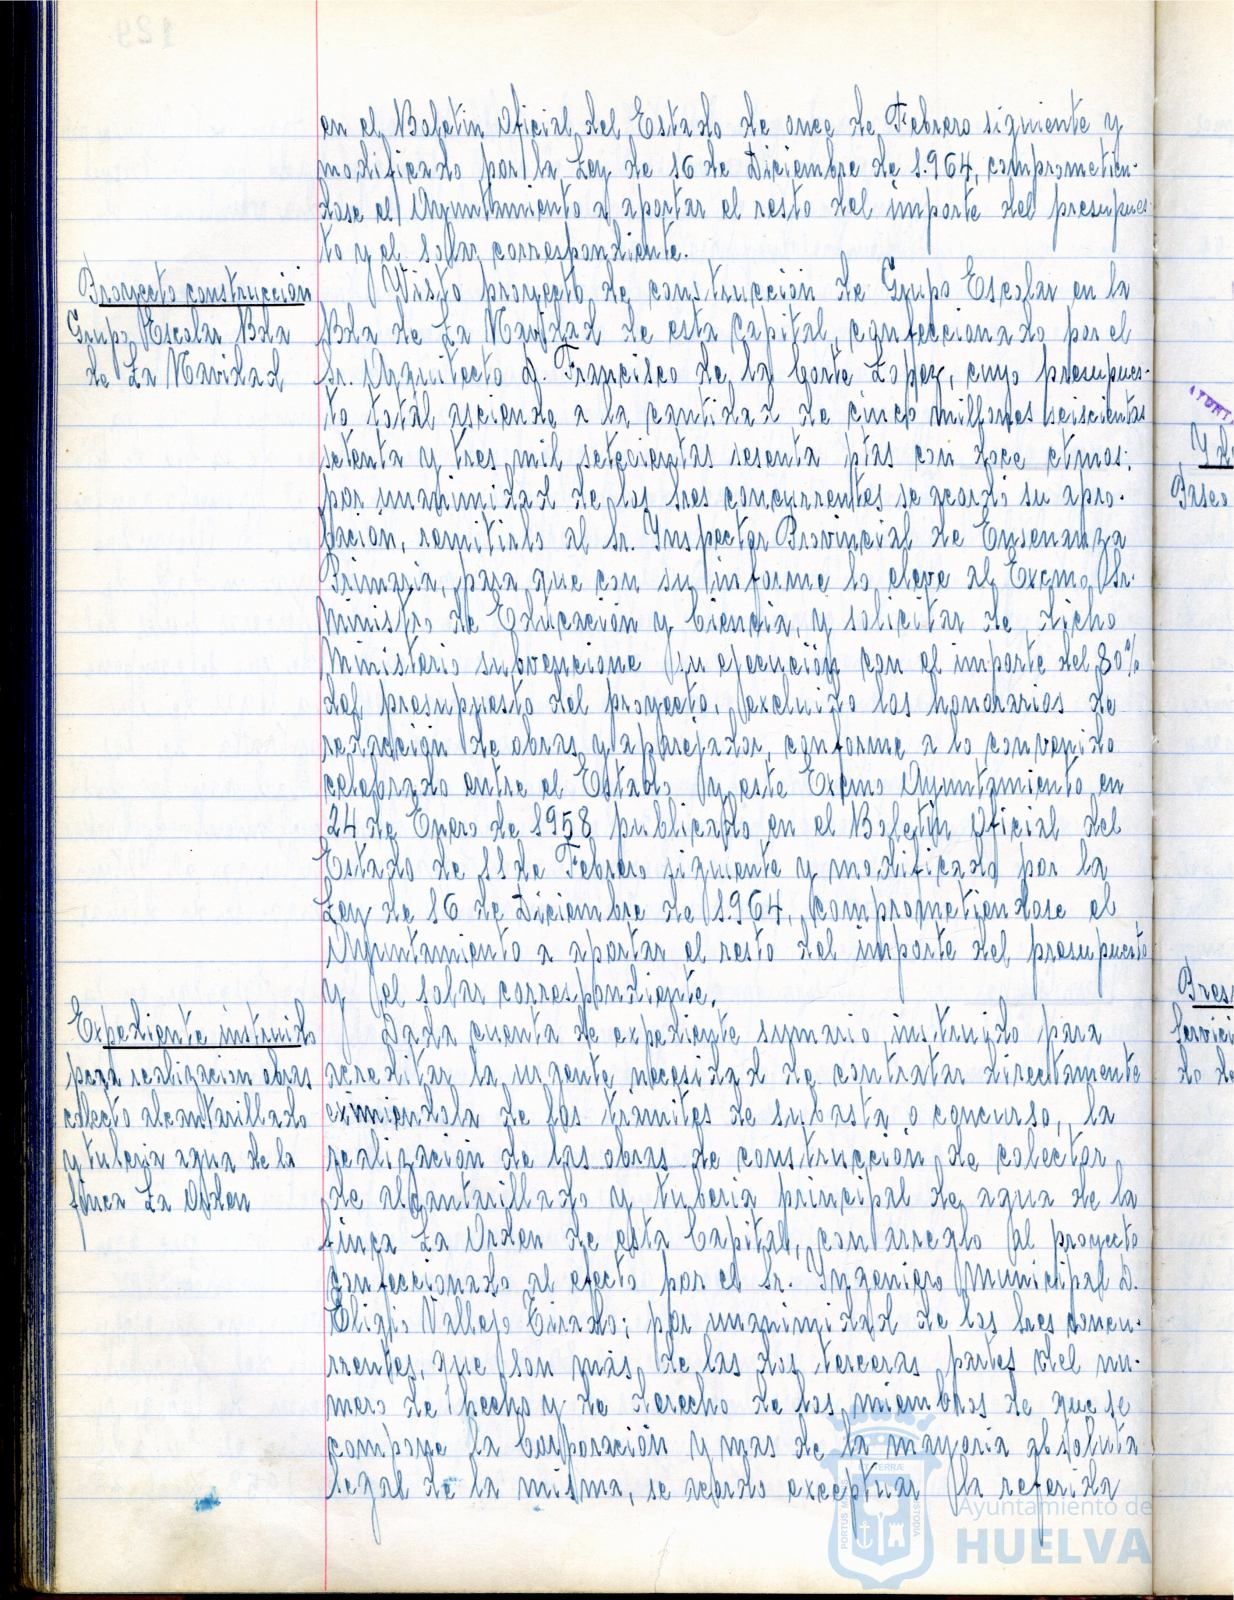 en el Boletin Oficial del Estado de once de Febrero siguiente y
modificado por la Ley de 16 de Diciembre de 1.964, comprometien-
dose el Ayuntamiento a aportar el resto del importe del presupues-
to y el solar correspondiente.
Proyecto construcción
Grupo Escolar Bda
de La Navidad
Visto proyecto de construcción de Grupo Escolar en la
Bda de La Navidad de esta Capital, confeccionado por el
Sr. Arquitecto D. Francisco de la Corte Lopez, cuyo presupues-
to total asciende a la cantidad de cinco millones seiscientas
setenta y tres mil setecientas sesenta ptas con doce ctmos;
por unanimidad de los Sres concurrentes se acordó su apro-
bacion, remitirlo al Sr. Inspector Provincial de Enseñanza
Primaria, para que con su informe lo eleve al Excmo Sr.
Ministro de Educación y Ciencia, y solicitar de dicho
Ministerio subvencione su ejecución con el importe del 80%
del presupuesto del proyecto, excluido los honorarios de
redacción de obras y aparejador, conforme a lo convenido
celebrado entre el Estado y este Excmo Ayuntamiento en
24 de Enero de 1958 publicado en el Boletin Oficial del
Estado de 11 de Febrero siguiente y modificado por la
Ley de 16 de Diciembre de 1.964, comprometiendose el
Ayuntamiento a aportar el resto del importe del presupuesto
y el solar correspondiente.
Expediente instruido
para realizacion obras
colecto alcantarillado
y tuberia agua de la
finca La Orden
Dada cuenta de expediente sumario instruido para
acreditar la urgente necesidad de contratar directamente
eximiendola de los trámites de subasta o concurso, la
realización de las obras de construcción de colector
de alcantarillado y tuberia principal de agua de la
finca La Orden de esta Capital, con arreglo al proyecto
confeccionado al efecto por el Sr. Ingeniero Municipal D.
Eligio Vallejo Tirado; por unanimidad de los Sres concu-
rrentes, que son más de las dos terceras partes del nu-
mero de hecho y de derecho de los miembros de que se
compone la Corporación y mas de la mayoria absoluta
legal de la misma, se acordo exceptuar la referida
Paseo
Ayuntamiento de
HUELVA